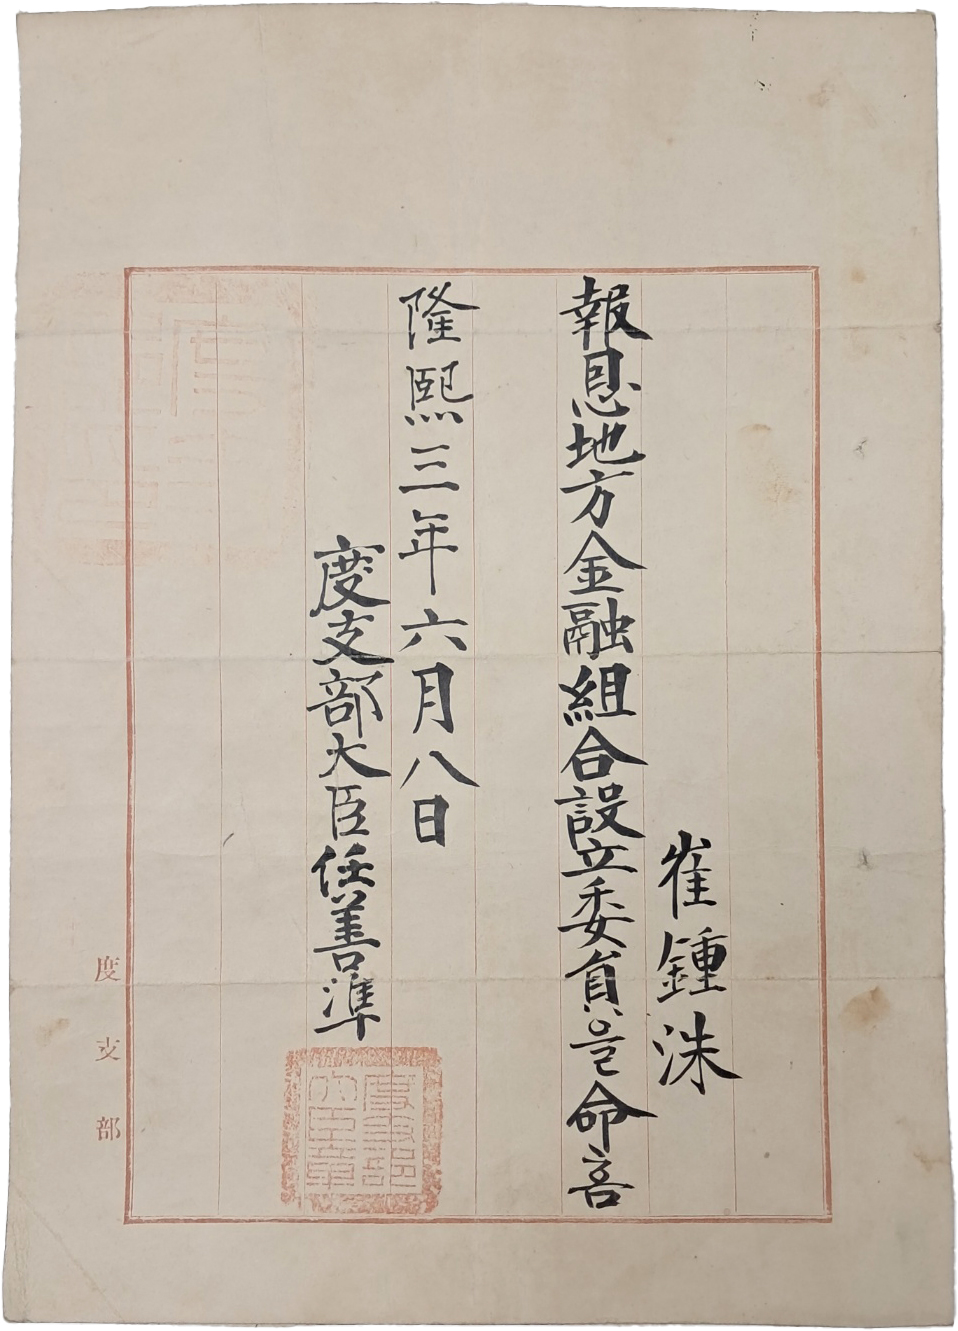 崔鍾洙
報恩地方金融組合設立委員을命홈
隆熙三年六月八日
度支部大臣任善準
度支部
大臣章
度支部